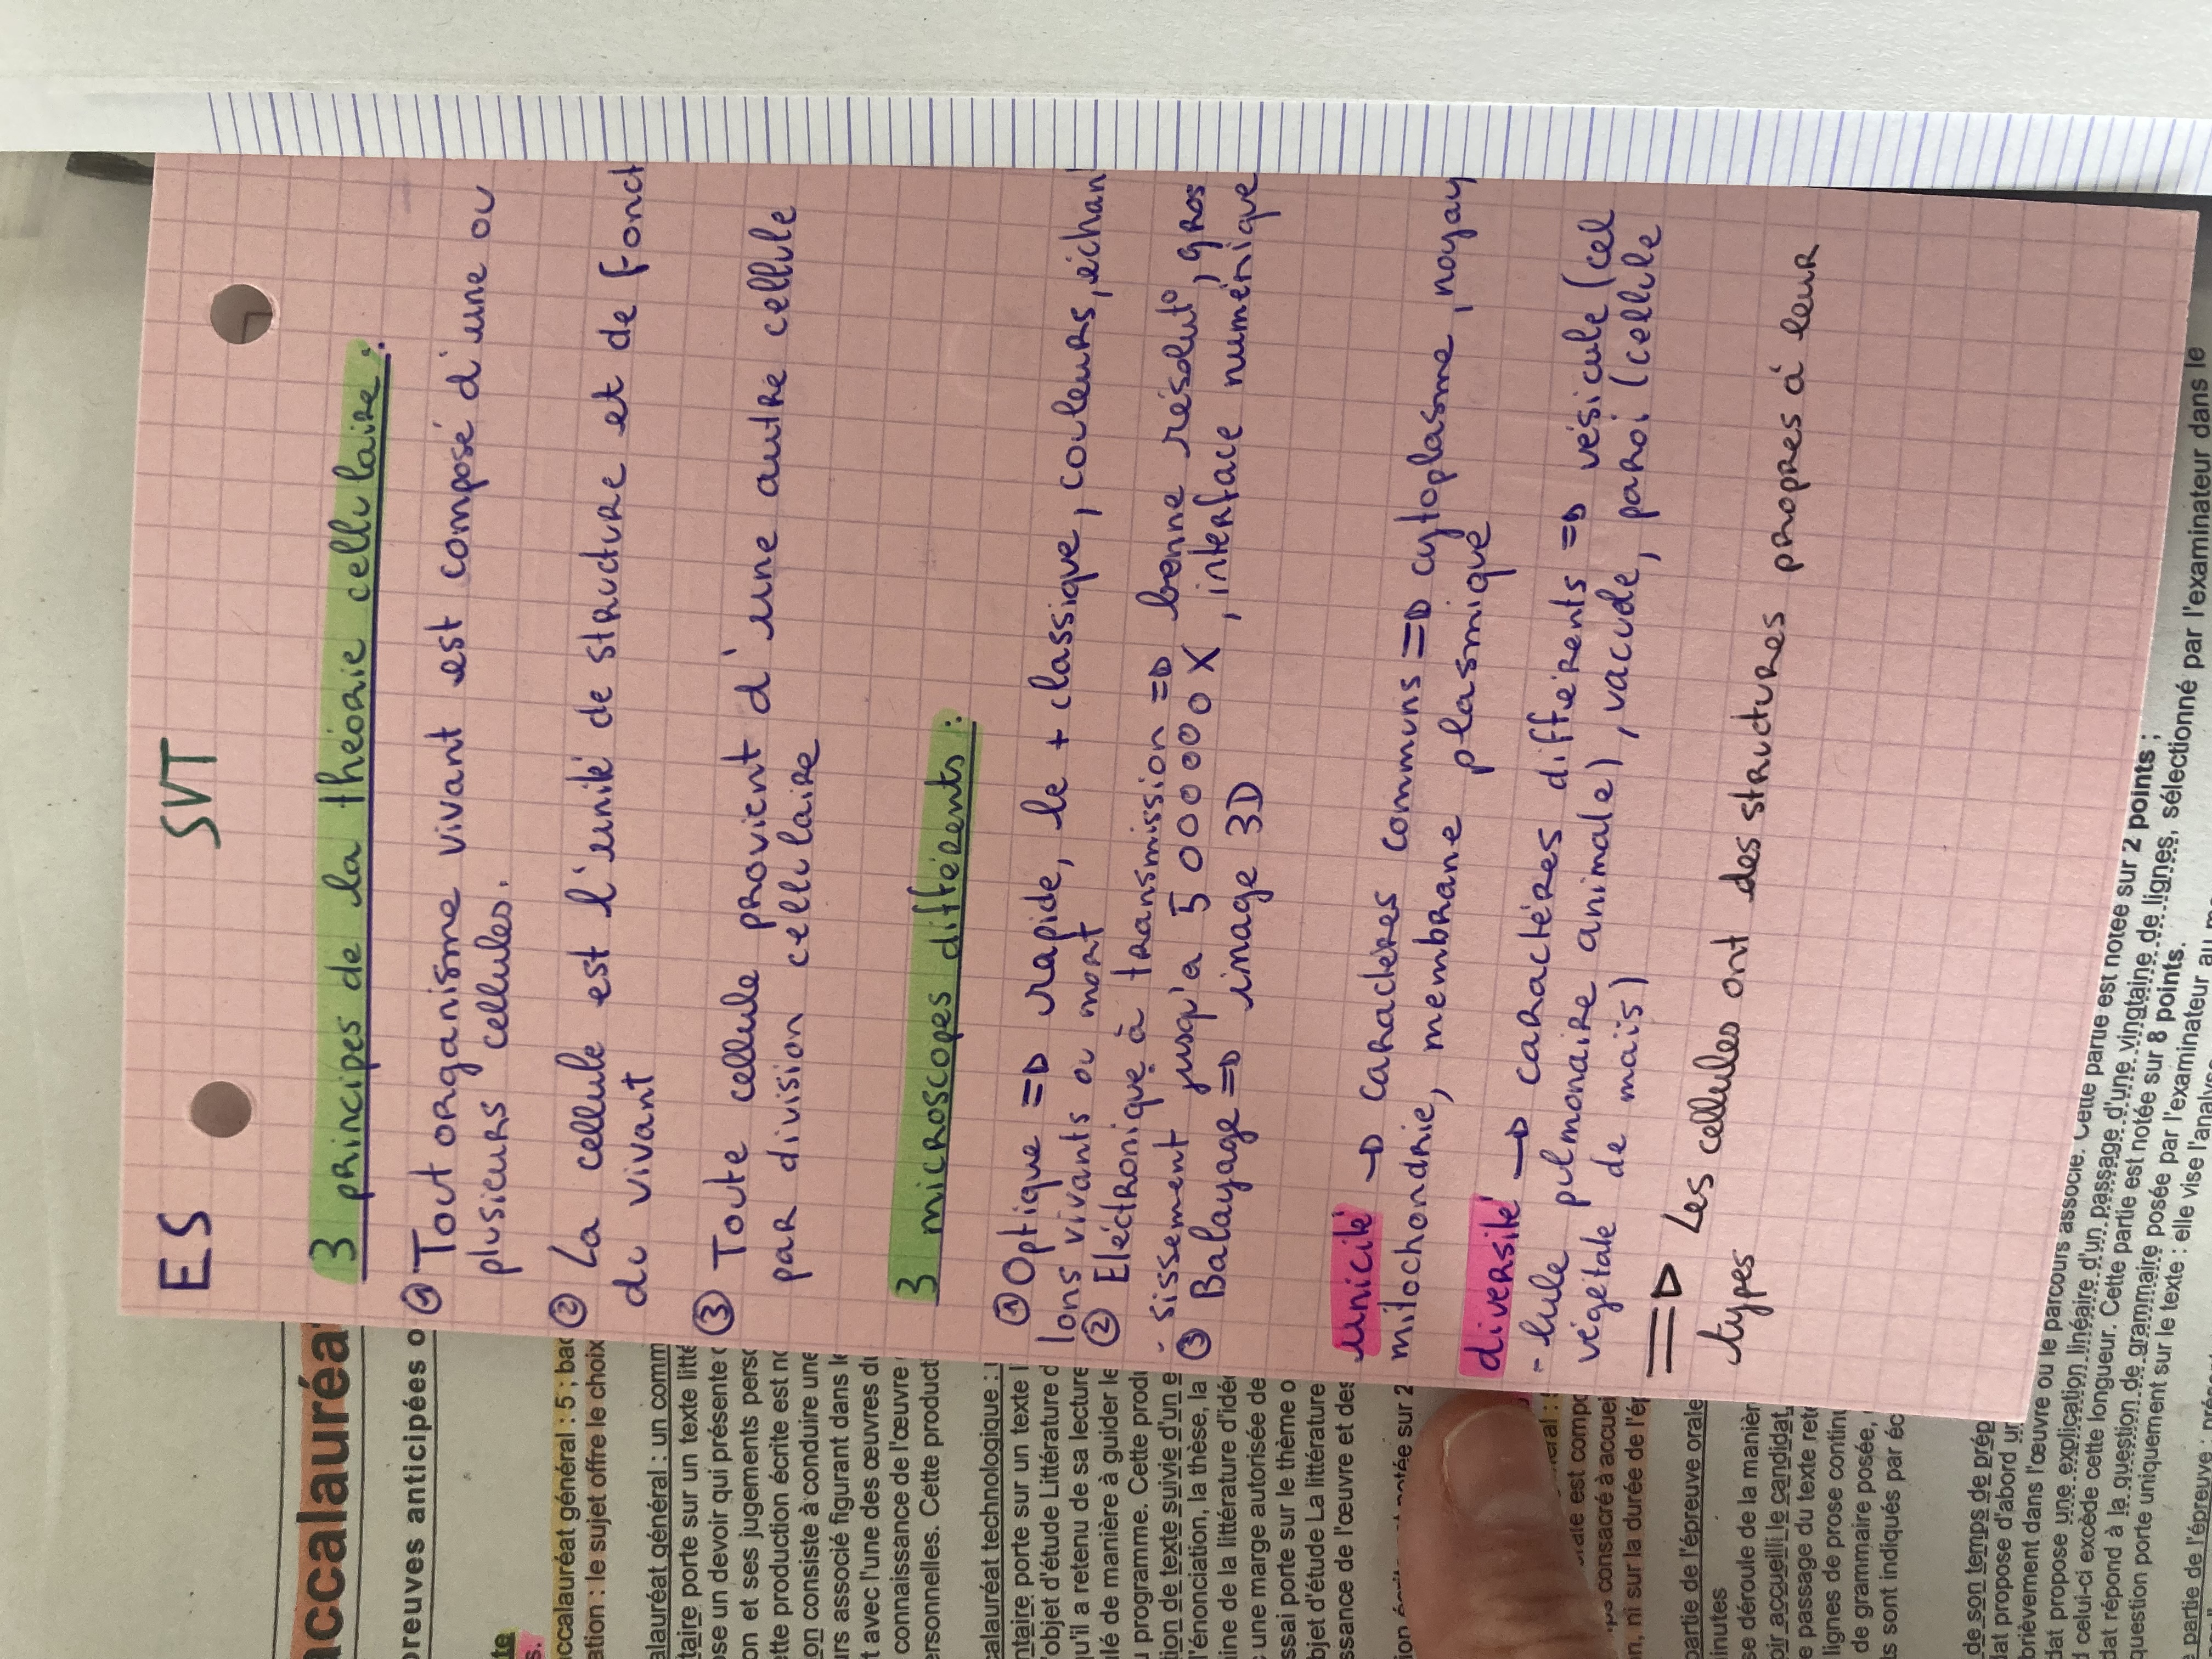 ES
SVT
3 principes de la théorie cellulaire :
① Tout organisme vivant est composé d'une ou
plusieurs cellules.
② La cellule est l'unité de structure et de fonct
du vivant
③ Toute cellule provient d'une autre cellule
par division cellulaire
3 microscopes différents :
① Optique => rapide, le + classique, couleurs, échan
lons vivants ou mort
② Electronique à transmission => bonne résolut°, gros
- sissement jusqu'a 5 000 000 X, interface numérique
③ Balayage => image 3D
unicité -> caractères communs => cytoplasme, noyau
mitochondrie, membrane plasmique
diversité -> caractères différents => vésicule (cel
- lule pulmonaire animale), vacuole, paroi (cellule
végétale de maïs)
=> Les cellules ont des structures propres à leur
types
accalauréa
preuves anticipées o
te
s.
accalauréat général : 5 ; bac
ation : le sujet offre le choix
alauréat général : un comm
taire porte sur un texte litté
ose un devoir qui présente
on et ses jugements perso
ette production écrite est no
on consiste à conduire une
urs associé figurant dans le
t avec l'une des œuvres du
connaissance de l'œuvre
ersonnelles. Cette product
calauréat technologique :
ntaire porte sur un texte l
'objet d'étude Littérature d
qu'il a retenu de sa lecture
ulé de manière à guider le
u programme. Cette produ
tion de texte suivie d'un e
l'énonciation, la thèse, la
aine de la littérature d'idé
c une marge autorisée de
ssai porte sur le thème o
bjet d'étude La littérature
ssance de l'œuvre et des
notée sur 2
éral :
orale est compo
consacré à accuei
n, ni sur la durée de l'ép
partie de l'épreuve orale
inutes
se déroule de la manièr
oir accueilli le candidat,
e passage du texte rete
lignes de prose continu
de grammaire posée,
ts sont indiqués par éc
de son temps de prép
dat propose d'abord un
brièvement dans l'œuvre ou le parcours associé. Cette partie est notée sur 2 points ;
dat propose une explication linéaire d'un passage d'une vingtaine de lignes, sélectionné par l'examinateur dans le
d celui-ci excède cette longueur. Cette partie est notée sur 8 points.
dat répond à la question de grammaire posée par l'examinateur au
question porte uniquement sur le texte : elle vise l'analys
e partie de l'épreuve :